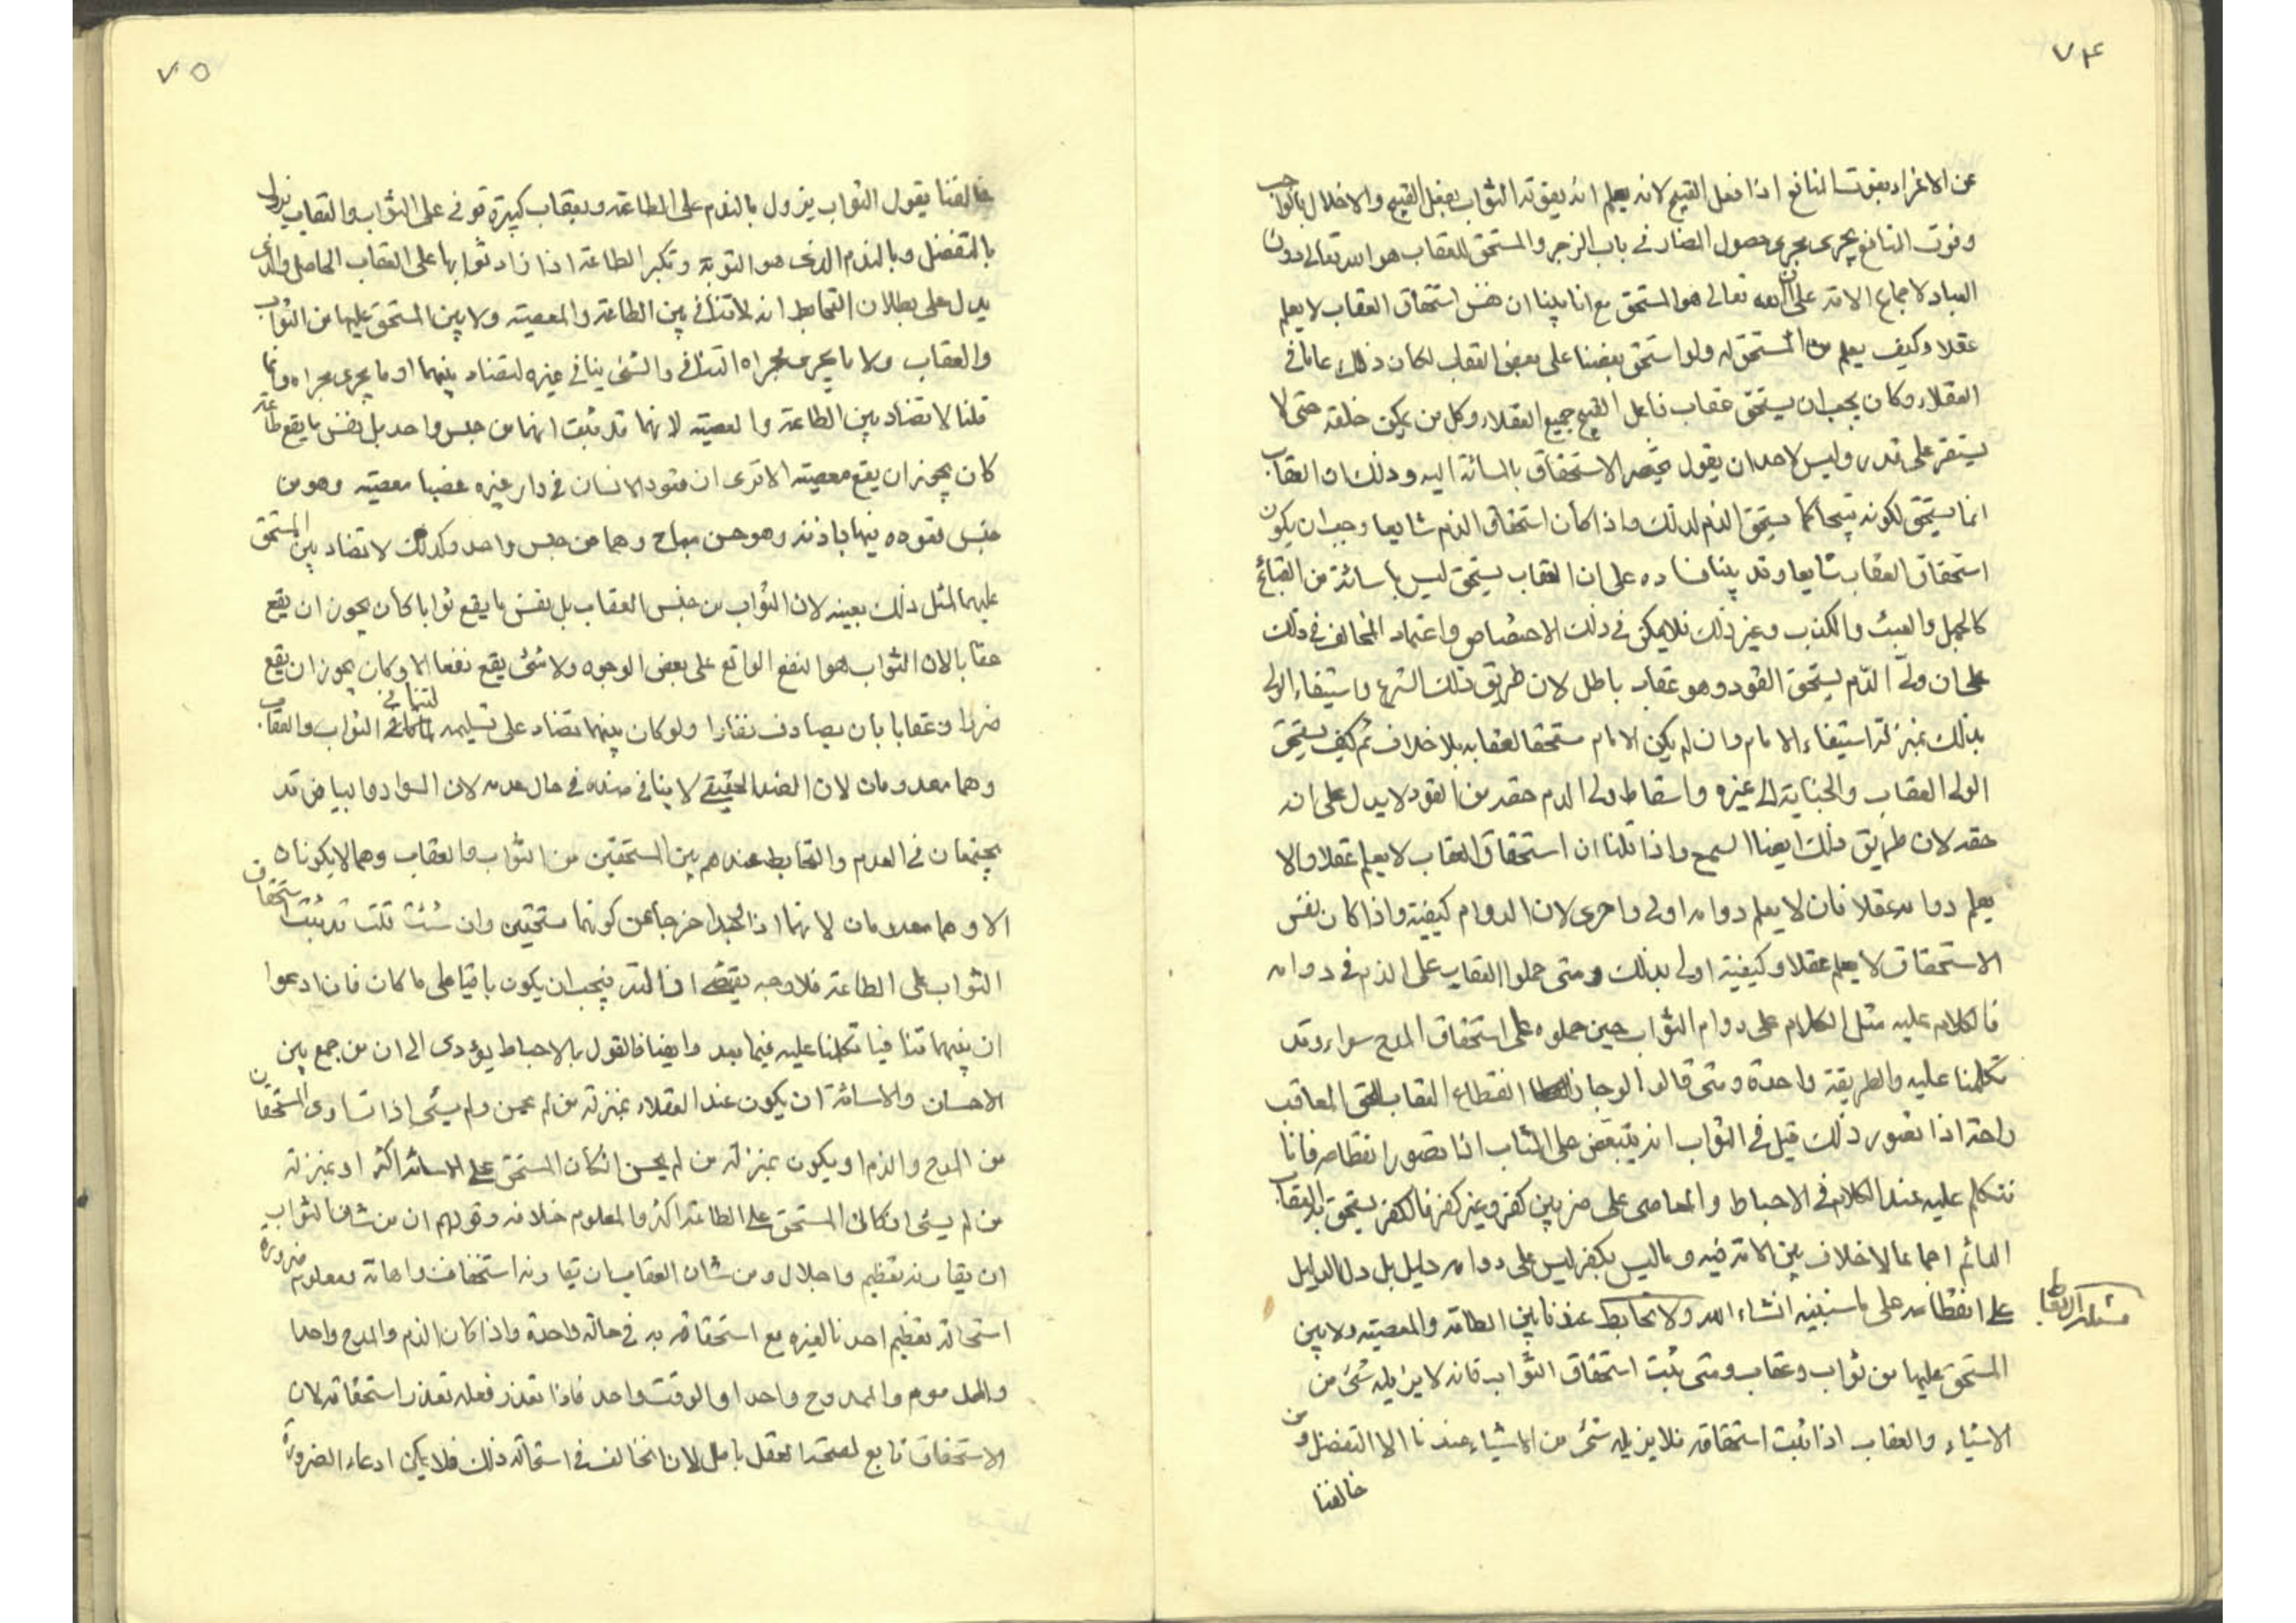 ٧٤
عن الاغراء بفوت المنافع اذا فعل القبيح لانه يعلم انه يفوته الثواب بفعل القبيح والاخلال بالواجب
وفوت المنافع يجرى مجرى حصول المضار فى باب الزجر والمستحق للعقاب هو الله تعالى دون
العباد لاجماع الامة على ان الله تعالى هو المستحق مع انا بينا ان نفس استحقاق العقاب لا يعلم
عقلا وكيف يعلم من المستحق له ولو استحق بعضنا على بعض العقاب لكان ذلك عاما فى
العقلاء وكان يجب ان يستحق عقاب فاعل القبيح جميع العقلاء وكل من يمكن خلقه حتى لا
يستقر على قدر وليس لاحد ان يقول يختص الاستحقاق بالمسائة اليه وذلك ان العقاب
انما يستحق لكونه قبيحا كما يستحق الذم لذلك واذا كان استحقاق الذم شايعا وجب ان يكون
استحقاق العقاب شايعا وقد بينا فساده على ان العقاب يستحق ليس باسائة من القبائح
كالجهل والعبث والكذب وغير ذلك فلا يمكن فى ذلك الاختصاص واعتماد المخالف فى ذلك
على ان ولى الدم يستحق القود وهو عقاب باطل لان طريق ذلك الشرع واستيفاء الولى
بذلك بمنزلة استيفاء الامام وان لم يكن الامام مستحقا لعقابه بلا خلاف ثم كيف يستحق
الولى العقاب والجناية الى غيره واسقاط ولى الدم حقه من القود لا يدل على انه
حقه لان طريق ذلك ايضا السمع واذا قلنا ان استحقاق العقاب لا يعلم عقلا والا
يعلم دوامه عقلا فان لا يعلم دوامه اولى واحرى لان الدوام كيفية واذا كان نفس
الاستحقاق لا يعلم عقلا وكيفيته اولى بذلك ومتى حملوا العقاب على الذم فى دوامه
فالكلام عليه مثل الكلام على دوام الثواب حين حملوه على استحقاق المدح سواء وقد
تكلمنا عليه والطريقة واحدة ومتى قالوا لو جاز انقطاع العقاب للحق المعاقب
راحة اذا تصور ذلك قيل فى الثواب انه يتبغض على المثاب اذا تصور انقطاعه فانا
نتكلم عليه عند الكلام فى الاحباط والمعاصى على ضربين كفر وغير كفر فالكفر يستحق به العقاب
الدائم اجماعا لا خلاف بين الامة فيه وما ليس بكفر ليس على دوامه دليل بل دل الدليل
على انقطاعه على ما سنبينه انشاء الله ولا تحابط عندنا بين الطاعة والمعصية ولا بين
المستحق عليها من ثواب وعقاب ومتى ثبت استحقاق الثواب فانه لا يزيله شئ من
الاشياء والعقاب اذا ثبت استحقاقه فلا يزيله شئ من الاشياء عندنا الا التفضل ومن
خالفنا
٧٥
خالفنا يقول الثواب يزول بالندم على الطاعة وبعقاب كبيرة توفى على الثواب والعقاب يزول
بالتفضل وبالندم الذى هو التوبة وتكبر الطاعة اذا زاد ثوابها على العقاب الحاصل والذى
يدل على بطلان التحابط انه لا تنافى بين الطاعة والمعصية ولا بين المستحق عليها من الثواب
والعقاب ولا ما يجرى مجراه التنافى والشئ ينافى غيره لتضاد بينهما او ما يجرى مجراه وانما
قلنا لا تضاد بين الطاعة والمعصية لانهما قد ثبت انهما من جنس واحد بل نفس ما يقع طاعة
كان يجوز ان يقع معصية الا ترى ان قعود الانسان فى دار غيره غصبا معصية وهو من
جنس قعوده فيها باذنه وهو حسن مباح وهما من جنس واحد وكذلك لا تضاد بين المستحق
عليهما لمثل ذلك بعينه لان الثواب من جنس العقاب بل نفس ما يقع ثوابا كان يجوز ان يقع
عقابا لان الثواب هو النفع الواقع على بعض الوجوه ولا شئ يقع نفعا الا وكان يجوز ان يقع
ضررا وعقابا بان يصادف نفارا ولو كان بينهما تضاد على تسليمه لما تنافى الثواب والعقاب
وهما معدومان لان الضد الحقيقى لا ينافى ضده فى حال عدمه لان السواد والبياض قد
يجتمعان فى العدم والتحابط عندهم بين المستحقين من الثواب والعقاب وهما لا يكونان
الا وهما معدومان لانهما اذا وجدا خرجا عن كونهما مستحقين وان شئت قلت قد ثبت استحقاق
الثواب على الطاعة فلا وجه يقتضى ازالته فيجب ان يكون باقيا على ما كان فان ادعوا
ان بينهما تنافيا تكلمنا عليه فيما بعد وايضا فالقول بالاحباط يؤدى الى ان من جمع بين
الاحسان والاساءة ان يكون عند العقلاء بمنزلة من لم يحسن ولم يسئ اذا تساوى المستحقان
من المدح والذم او يكون بمنزلة من لم يحسن ان كان المستحق على الاسائة اكثر او بمنزلة
من لم يسئ ان كان المستحق على الطاعة اكثر والمعلوم خلافه وقولهم ان من شان الثواب
ان يقارنه تعظيم واجلال ومن شان العقاب ان يقارنه استخفاف واهانة ومعلوم ضرورة
استحالة تعظيم احدنا لغيره مع استحقاقه به فى حالة واحدة واذا كان الذم والمدح واحدا
والمذموم والممدوح واحدا والوقت واحد فاذا تعذر فعله تعذر استحقاقه لان
الاستحقاق تابع لصحة الفعل باطل لان المخالف فى استحالة ذلك فلا يمكن ادعاء الضرورة